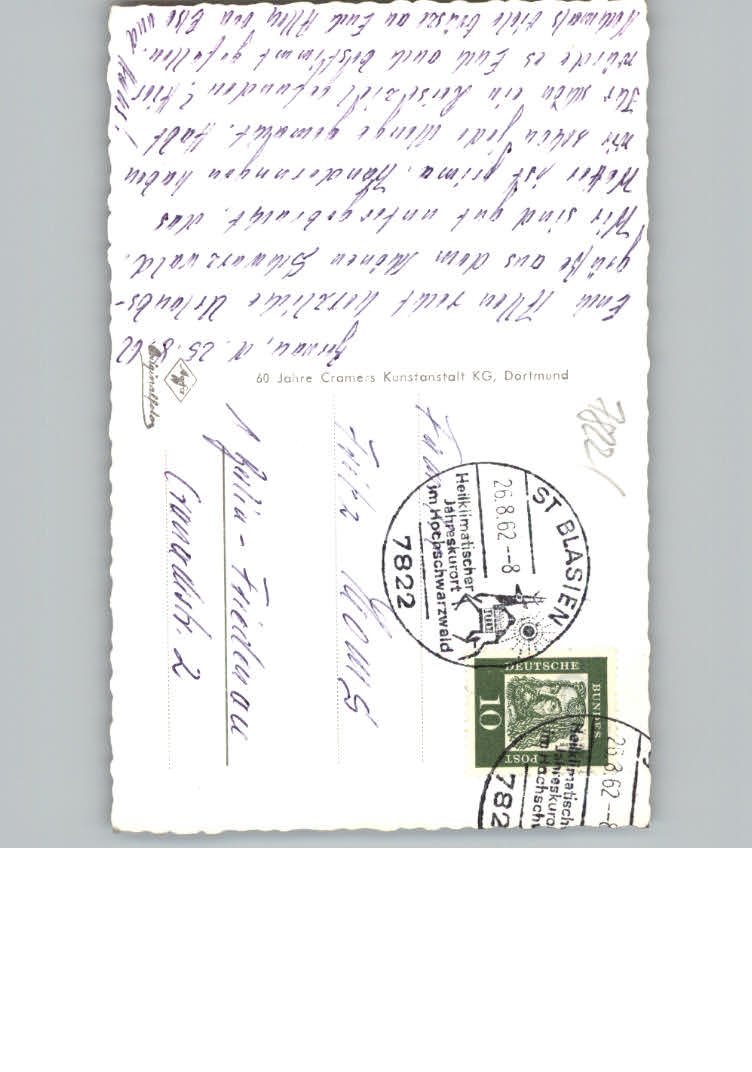 Bernau, d. 25.8.62
Euch Allen recht herzliche Urlaubs-
grüße aus dem schönen Schwarzwald.
Wir sind gut untergebracht. Das
Wetter ist prima. Wanderungen haben
wir schon jede Menge gemacht. Habt
Ihr schon ein Reiseziel gefunden? Hier
würde es Euch auch bestimmt gefallen.
Nochmals viele Grüße an Euch Allen von Else und
Hans!
60 Jahre Cramers Kunstanstalt KG, Dortmund
Agfa
Originalfoto
7822
Fam.
Fritz
1 Berlin-Friedenau
Cranachstr. 2
ST BLASIEN
26.8.62--8
Heilklimatischer
Jahreskurort
im Hochschwarzwald
7822
DEUTSCHE
BUNDES
POST
10
26.8.62--8
Heilklimatisch
Jahreskuro
im Hochsch
782